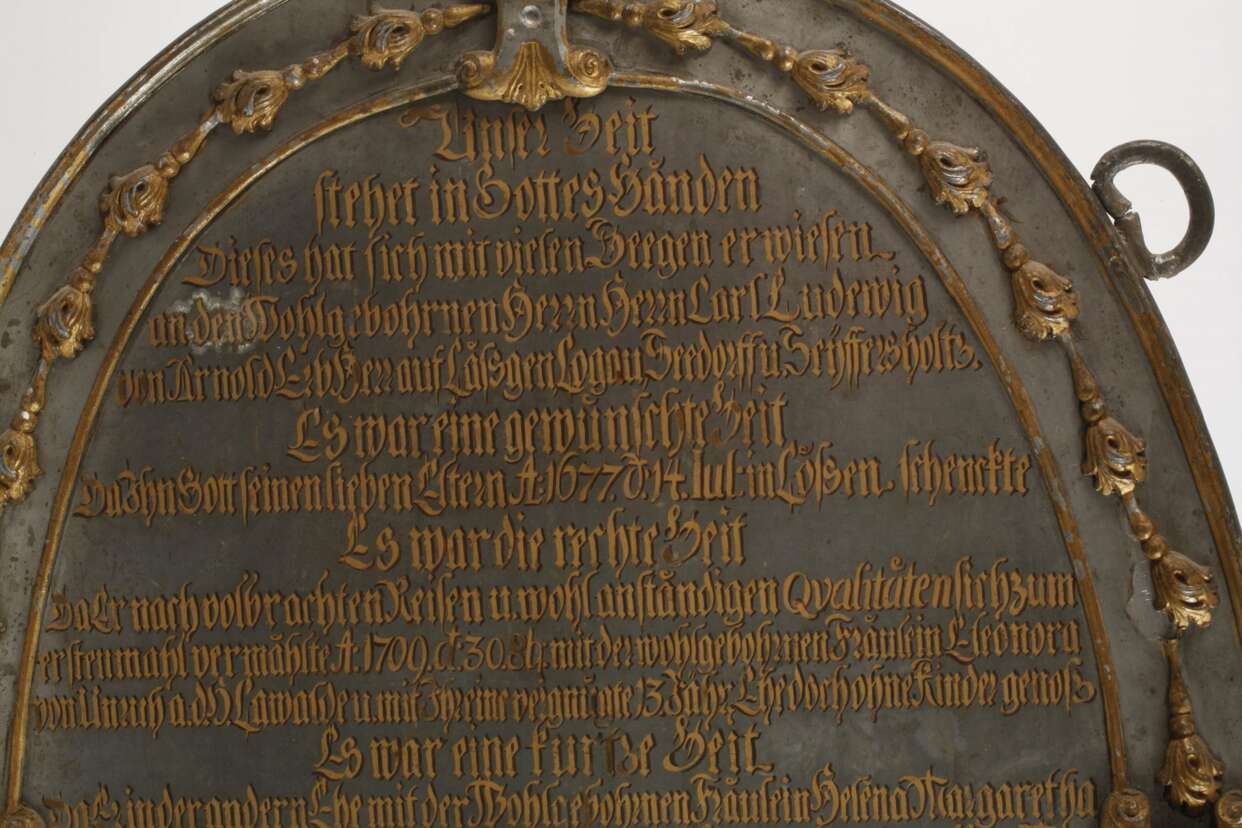 Unser Zeit
stehet in Gottes Händen
Dieses hat sich mit vielen Seegen erwiesen
an den Wohlgebohrnen Herrn Herrn Carl Ludewig
von Arnold Erb Herr auf Lässgen Logau, Seedorff u.
Es war eine gewünschte Zeit
Da Ihn Gott seinen lieben Eltern A: 1677. d. 14. Iul: in Lössen schenckte
Es war die rechte Zeit
Da Er nach volbrachten Reisen u. wohl anständigen Qvalitäten sich zum
erstenmahl vermählte A: 1709. d. 30. mit der wohlgebohrnen Fräulein Eleonora
von Unruh a. d. H. Lawalde u. mit Ihr eine vergnügte 13 Jähr. Ehe doch ohne Kinder genoss
Es war eine kurtze Zeit
Da Er in der andern Ehe mit der Wohlgebohrnen Fräulein Helena Margaretha